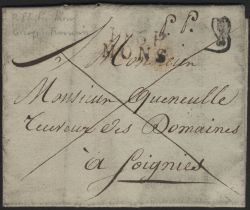 P. P.
MONS
Monsieur
Monsieur Queneulle
Receveur des Domaines
à Soignies